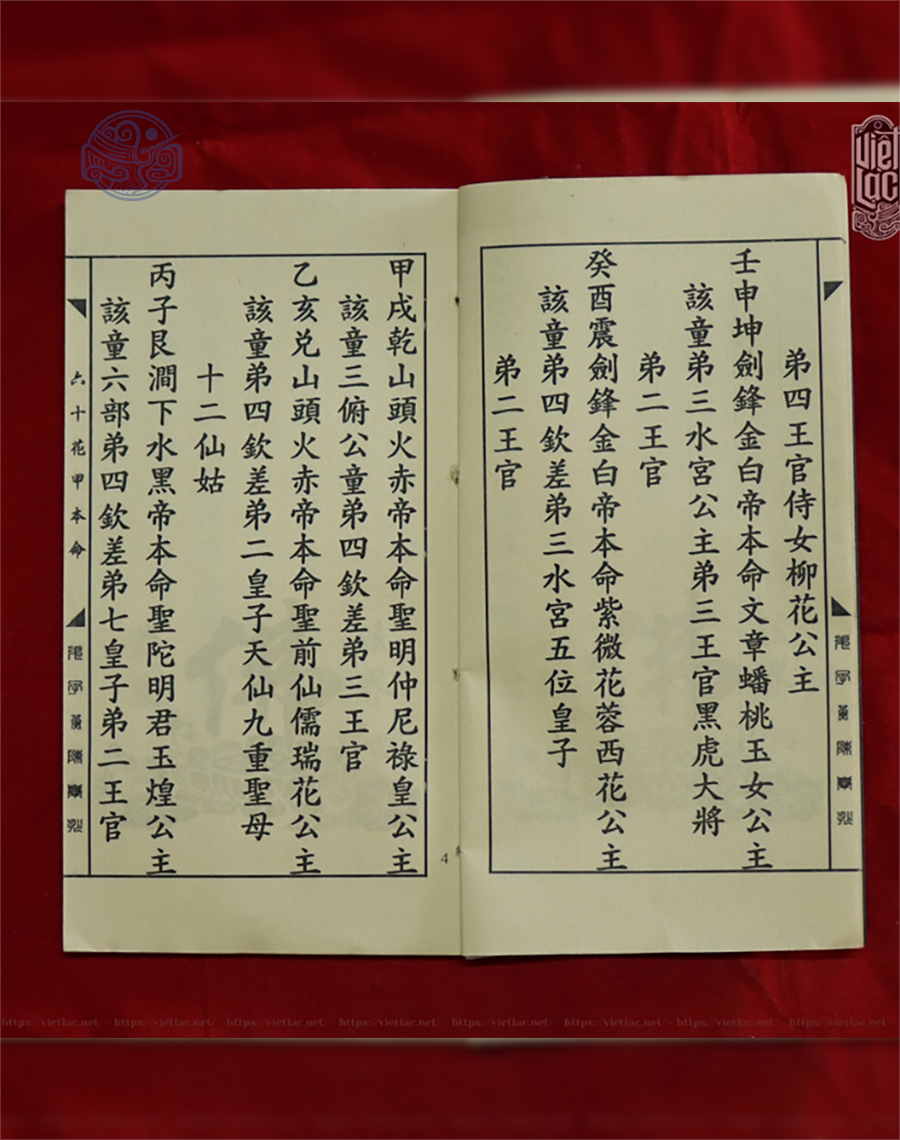 弟四王官侍女柳花公主
壬申坤劍鋒金白帝本命文章蟠桃玉女公主
該童弟三水宮公主弟三王官黑虎大將
弟二王官
癸酉震劍鋒金白帝本命紫微花蓉西花公主
該童弟四欽差弟三水宮五位皇子
弟二王官
甲戌乾山頭火赤帝本命聖明仲尼祿皇公主
該童三俯公童弟四欽差弟三王官
乙亥兑山頭火赤帝本命聖前仙儒瑞花公主
該童弟四欽差弟二皇子天仙九重聖母
十二仙姑
丙子艮澗下水黑帝本命聖陀明君玉煌公主
該童六部弟四欽差弟七皇子弟二王官
六十花甲本命
4
Việt Lạc
https://vietlac.net/ - https://vietlac.net/ - https://vietlac.net/ - https://vietlac.net/ - https://vietlac.net/ - https://vietlac.net/ - https://vietlac.net/ - https://vietlac.net/ -